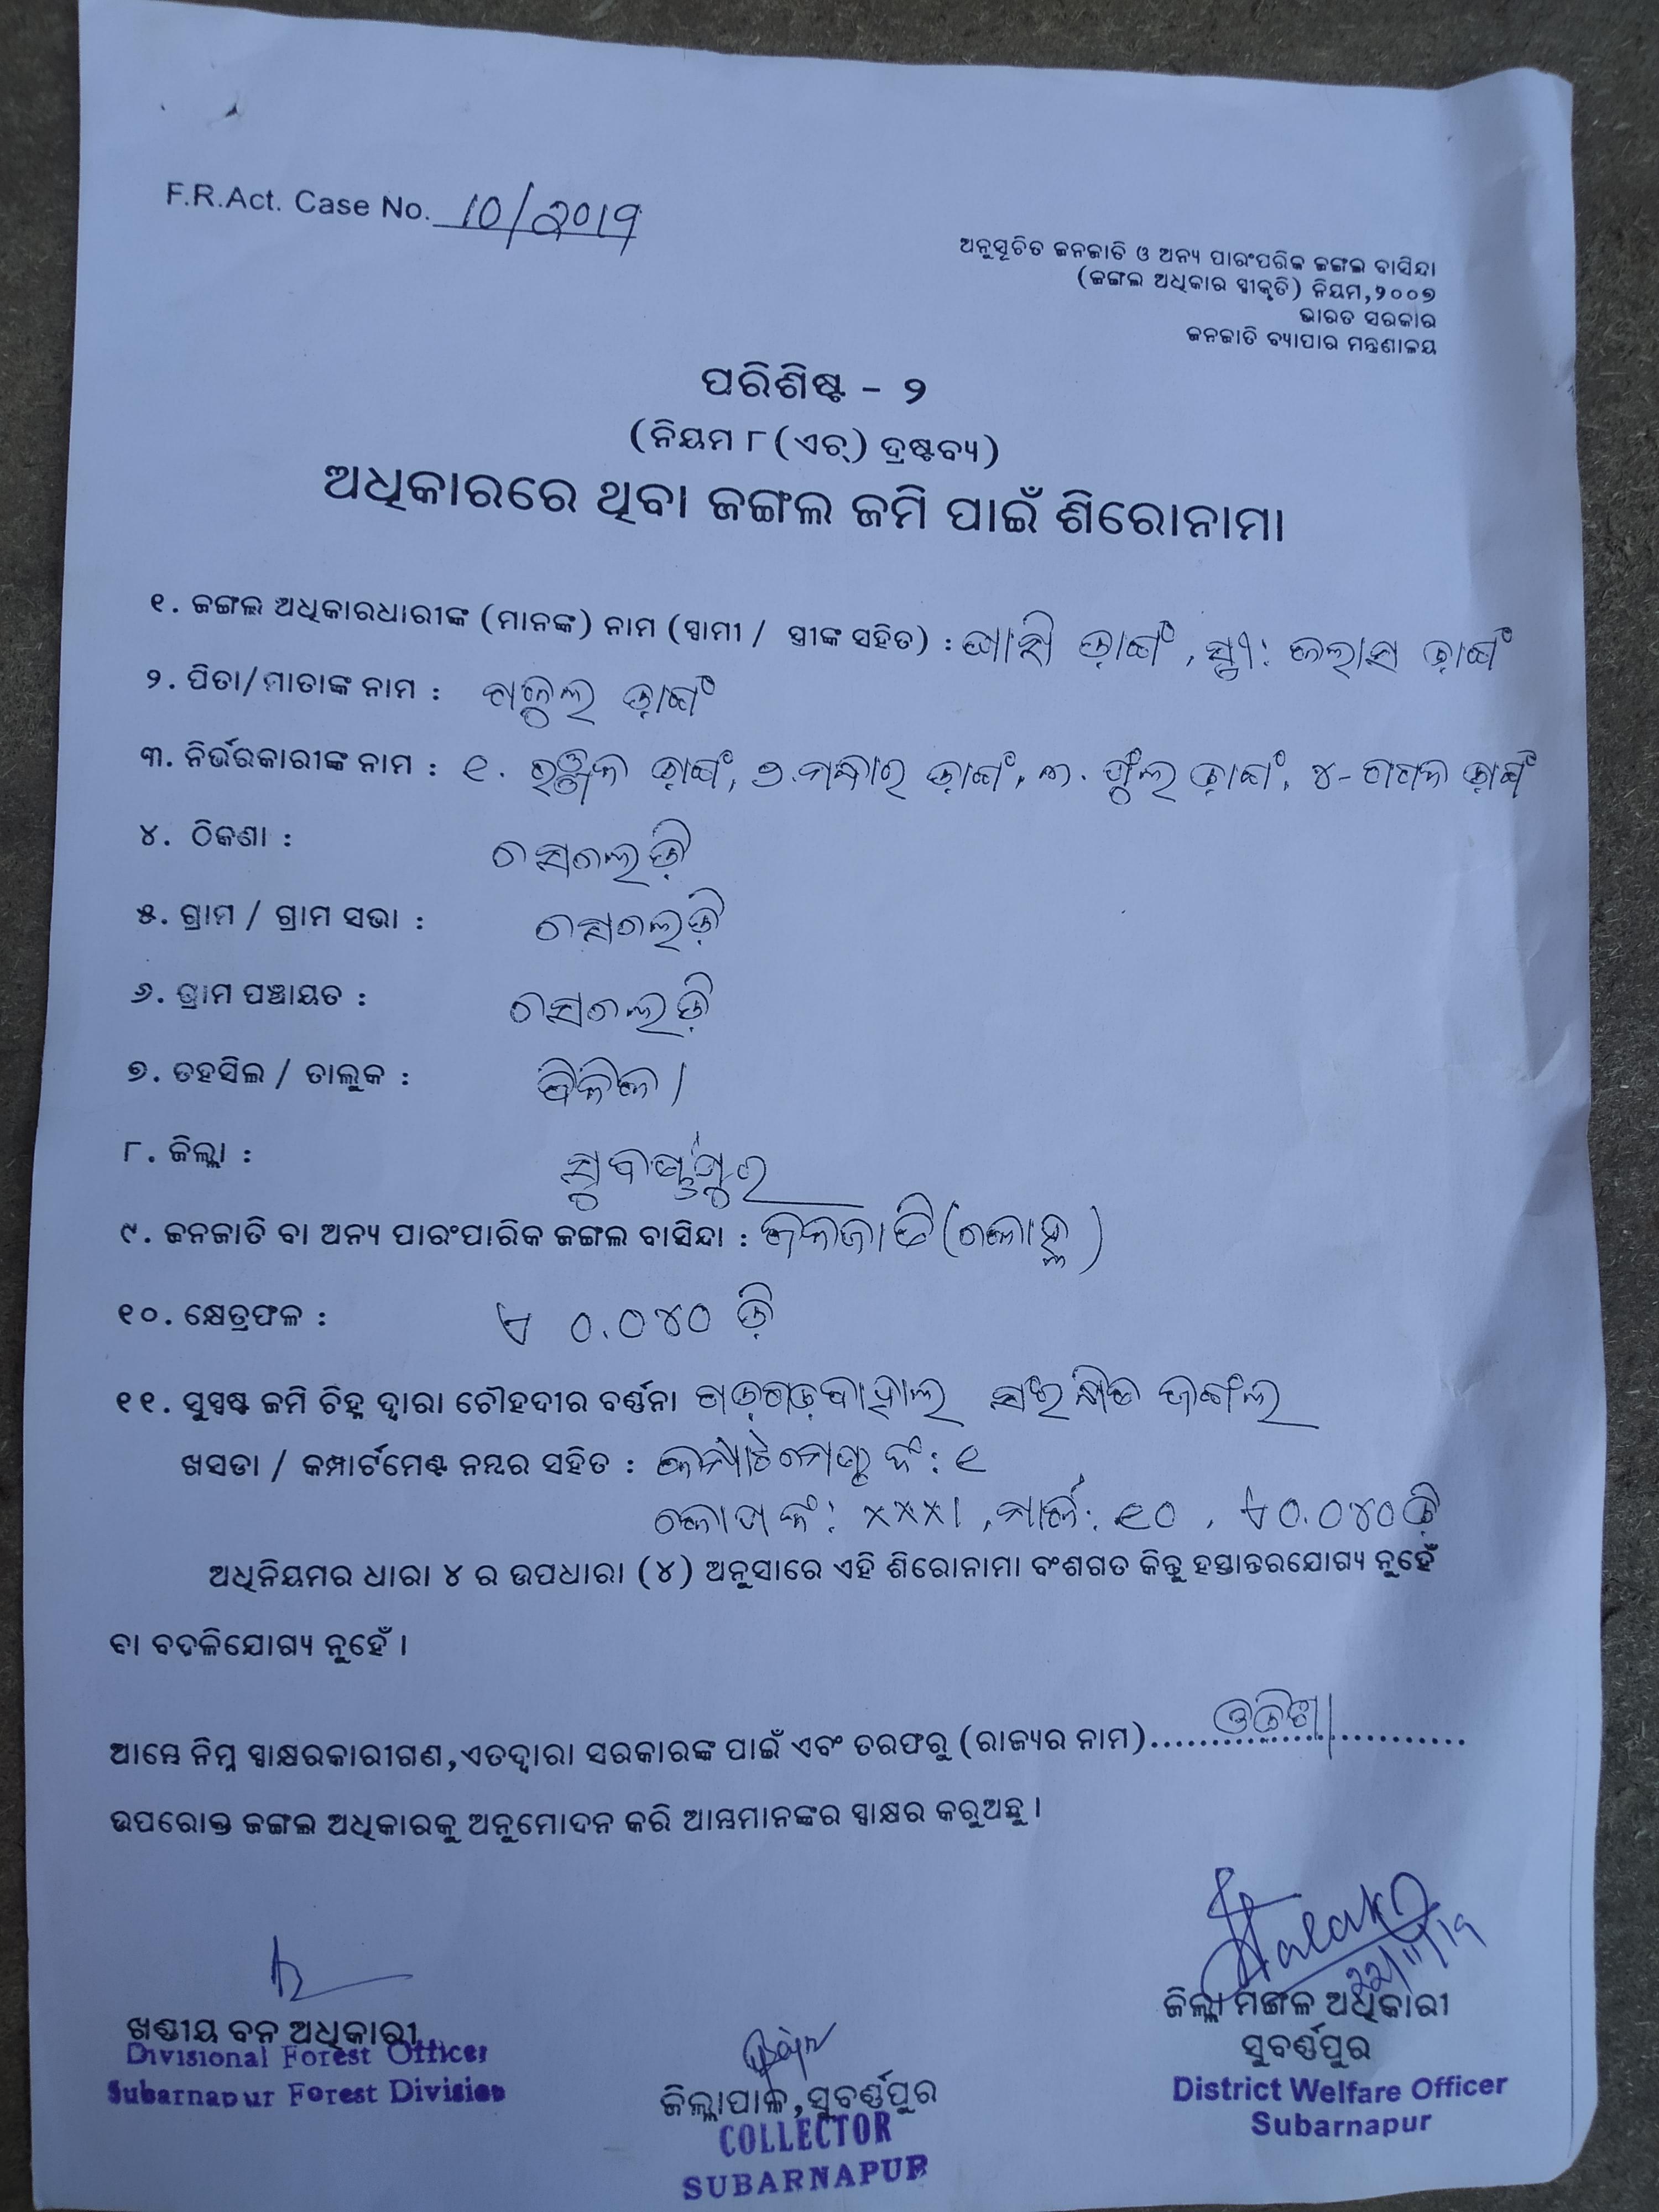 F.R.Act. Case No. 10/2019
ଅନୁସୂଚିତ ଜନଜାତି ଓ ଅନ୍ୟ ପାରଂପରିକ ଜଙ୍ଗଲ ବାସିନ୍ଦା
(ଜଙ୍ଗଲ ଅଧିକାର ସ୍ୱୀକୃତି) ନିୟମ,୨୦୦୭
ଭାରତ ସରକାର
ଜନଜାତି ବ୍ୟାପାର ମନ୍ତ୍ରଣାଳୟ
ପରିଶିଷ୍ଟ - ୨
(ନିୟମ ୮ (ଏଚ୍) ଦ୍ରଷ୍ଟବ୍ୟ)
ଅଧିକାରରେ ଥିବା ଜଙ୍ଗଲ ଜମି ପାଇଁ ଶିରୋନାମା
୧. ଜଙ୍ଗଲ ଅଧିକାରଧାରୀଙ୍କ (ମାନଙ୍କ) ନାମ (ସ୍ୱାମୀ / ସ୍ତ୍ରୀଙ୍କ ସହିତ) :
୨. ପିତା/ମାତାଙ୍କ ନାମ :
୩. ନିର୍ଭରକାରୀଙ୍କ ନାମ :
୪. ଠିକଣା : ସେଲେଡ଼ି
୫. ଗ୍ରାମ / ଗ୍ରାମ ସଭା : ସେଲେଡ଼ି
୬. ଗ୍ରାମ ପଞ୍ଚାୟତ : ସେଲେଡ଼ି
୭. ତହସିଲ / ତାଲୁକ :
୮. ଜିଲ୍ଲା : ସୁବର୍ଣ୍ଣପୁର
୯. ଜନଜାତି ବା ଅନ୍ୟ ପାରଂପାରିକ ଜଙ୍ଗଲ ବାସିନ୍ଦା : ଜନଜାତି
୧୦. କ୍ଷେତ୍ରଫଳ : ଏ ୦.୦୪୦ ଡ଼ି
୧୧. ସୁସ୍ପଷ୍ଟ ଜମି ଚିହ୍ନ ଦ୍ୱାରା ଚୌହଦୀର ବର୍ଣ୍ଣନା ଗଡ଼ଗଡ଼ବାହାଲ ସଂରକ୍ଷିତ ଜଙ୍ଗଲ
ଖସଡା / କମ୍ପାର୍ଟମେଣ୍ଟ ନମ୍ବର ସହିତ : କମ୍ପାର୍ଟମେଣ୍ଟ ନଂ: ୧
ନଂ: XXXI, ୧୦, ଏ ୦.୦୪୦ ଡ଼ି
ଅଧିନିୟମର ଧାରା ୪ ର ଉପଧାରା (୪) ଅନୁସାରେ ଏହି ଶିରୋନାମା ବଂଶଗତ କିନ୍ତୁ ହସ୍ତାନ୍ତରଯୋଗ୍ୟ ନୁହେଁ
ବା ବଦଳିଯୋଗ୍ୟ ନୁହେଁ ।
ଆମ୍ଭେ ନିମ୍ନ ସ୍ୱାକ୍ଷରକାରୀଗଣ,ଏତଦ୍ୱାରା ସରକାରଙ୍କ ପାଇଁ ଏବଂ ତରଫରୁ (ରାଜ୍ୟର ନାମ)......ଓଡିଶା..........
ଉପରୋକ୍ତ ଜଙ୍ଗଲ ଅଧିକାରକୁ ଅନୁମୋଦନ କରି ଆମ୍ଭମାନଙ୍କର ସ୍ୱାକ୍ଷର କରୁଅଛୁ ।
22/11/19
ଖଣ୍ଡୀୟ ବନ ଅଧିକାରୀ
Divisional Forest Officer
Subarnapur Forest Division
ଜିଲ୍ଲାପାଳ,ସୁବର୍ଣ୍ଣପୁର
COLLECTOR
SUBARNAPUR
ଜିଲ୍ଲା ମଙ୍ଗଳ ଅଧିକାରୀ
ସୁବର୍ଣ୍ଣପୁର
District Welfare Officer
Subarnapur